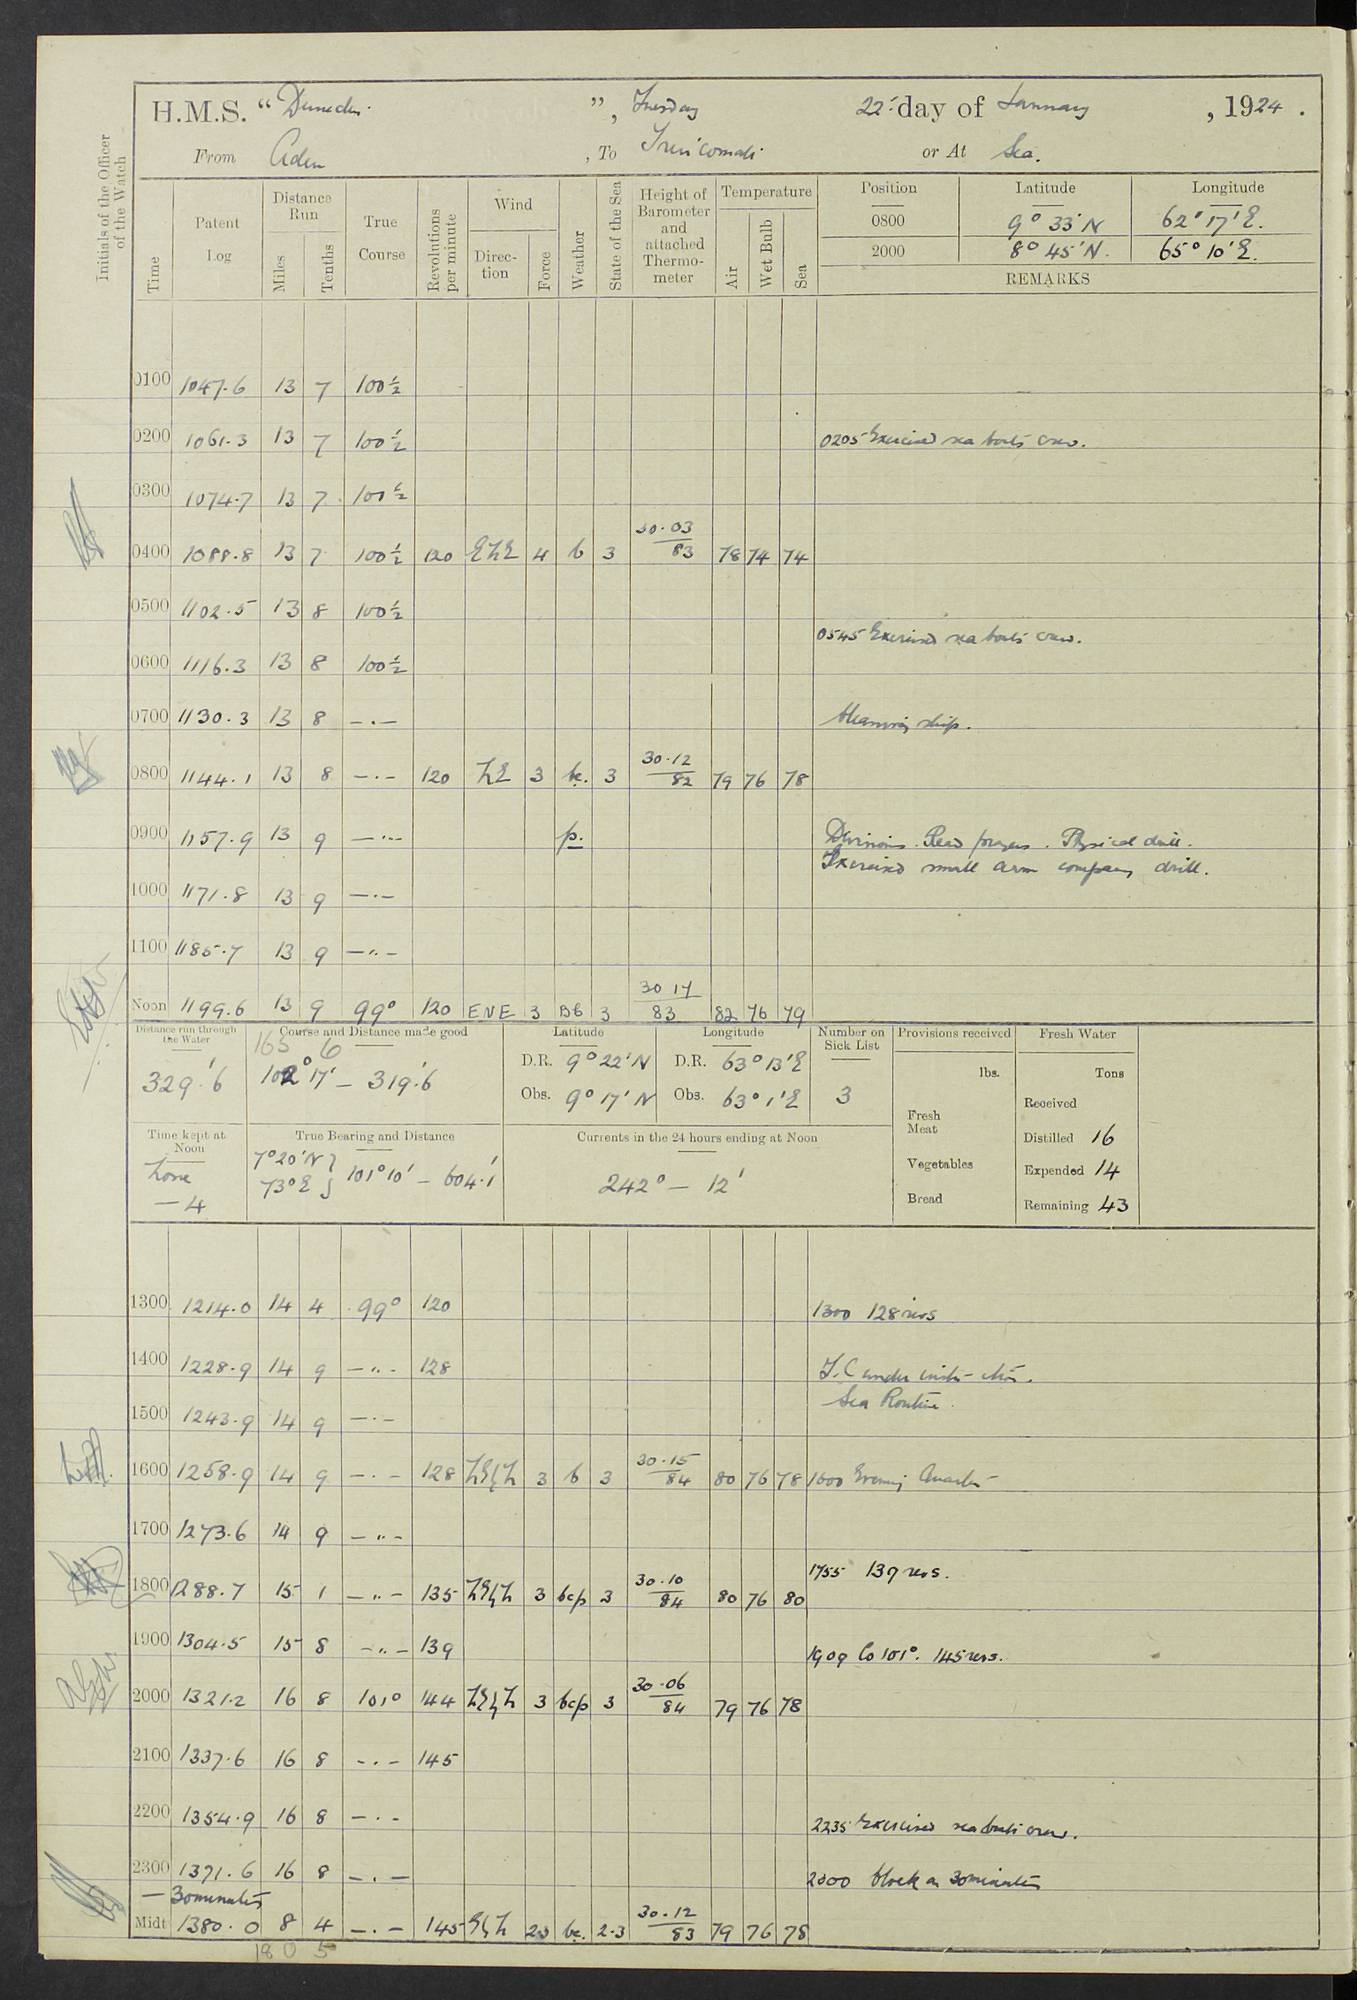 H.M.S. "Dunedin", Tuesday 22 day of January, 1924.
From Aden, To Trincomali or At Sea.
Initials of the Officer of the Watch
Time
Patent Log
Distance Run
Miles
Tenths
True Course
Revolutions per minute
Wind
Direction
Force
Weather
State of the Sea
Height of Barometer and attached Thermometer
Temperature
Air
Wet Bulb
Sea
Position Latitude Longitude
0800 9° 33' N 62° 17' E.
2000 8° 45' N. 65° 10' E.
REMARKS
0100 1047.6 13 7 100½
0200 1061.3 13 7 100½ 0205 Exercised sea boats crew.
0300 1074.7 13 7 100½
0400 1088.8 13 7 100½ 120 ENE 4 b 3 30.03 83 78 74 74
0500 1102.5 13 8 100½
0545 Exercised sea boats crew.
0600 1116.3 13 8 100½
0700 1130.3 13 8 —.— Cleaning ship.
0800 1144.1 13 8 —.— 120 NE 3 bc. 3 30.12 82 79 76 78
0900 1157.9 13 9 —..— p. Divisions. Read prayers. Physical drill.
Exercised small arm company drill.
1000 1171.8 13 9 —.—
1100 1185.7 13 9 —..—
Noon 1199.6 13 9 99° 120 ENE 3 Bc 3 30 17 83 82 76 79
Distance run through the Water
329.'6
Course and Distance made good
165 6
102° 17' — 319.'6
Latitude
D.R. 9° 22' N
Obs. 9° 17' N
Longitude
D.R. 63° 13' E
Obs. 63° 1' E
Number on Sick List
3
Provisions received
lbs.
Fresh Meat
Vegetables
Bread
Fresh Water
Tons
Received
Distilled 16
Expended 14
Remaining 43
Time kept at Noon
Zone
— 4
True Bearing and Distance
7° 20' N } 101° 10' — 604.'1
73° E
Currents in the 24 hours ending at Noon
242° — 12'
1300 1214.0 14 4 99° 120 1300 128 revs
1400 1228.9 14 9 —..- 128 T.C under instruction.
Sea Routine.
1500 1243.9 14 9 —.—
1600 1258.9 14 9 —.— 128 NE/N 3 b 3 30.15 84 80 76 78 1600 Evening Quarters
1700 1273.6 14 9 —..-
1755 139 revs.
1800 1288.7 15 1 —..- 135 NE/N 3 bcp 3 30.10 84 80 76 80
1900 1304.5 15 8 —..- 139 1909 Co 101°. 145 revs.
2000 1321.2 16 8 101° 144 NE/N 3 bcp 3 30.06 84 79 76 78
2100 1337.6 16 8 —.— 145
2200 1354.9 16 8 —.-
2235 Exercised sea boats crew.
2300 1371.6 16 8 —.— 2300 Clock on 30 minutes
— 30 minutes
Midt 1380.0 8 4 —.— 145 E/N 23 bc. 2.3 30.12 83 79 76 78
180 5